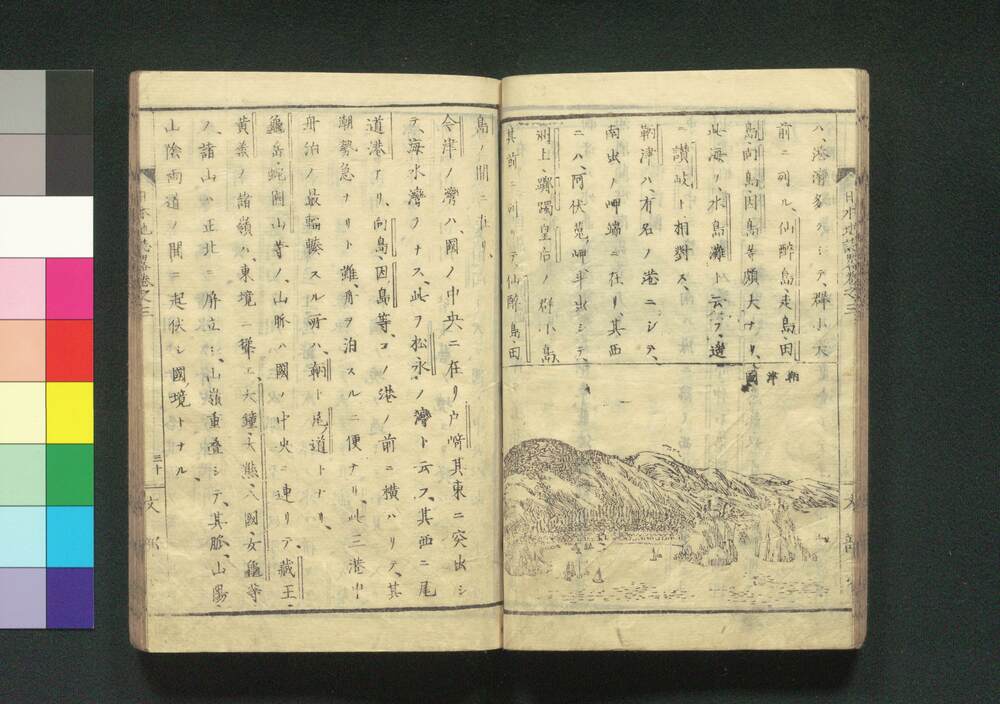 ハ、港灣多クシテ、群小大
前ニ列ル、仙醉島、走島、田
島、向島、因島等頗大ナリ、
此海ヲ、水島灘ト云フ、遙
ニ讃岐ト相對ス、
鞆津ハ、有名ノ港ニシテ、
南出ノ岬端ニ在リ、其西
ニハ、阿伏兎岬斗出シテ、
洲上、躑躅、皇后ノ群小島、
其前ニ列リテ仙醉島、田
鞆津圖
島ノ間ニ在リ、
今津ノ灣ハ、國ノ中央ニ在リ、戸崎其東ニ突出シ
テ、海水灣ヲナス、此ヲ松永ノ灣ト云フ、其西ニ尾
道港アリ、向島、因島等、コノ港ノ前ニ横ハリテ、其
潮勢急ナリト雖、舟ヲ泊スルニ便ナリ、此三港中
舟泊ノ最輻輳スル所ハ、鞆ト尾道トナリ、
龜岳、蛇圓山等ノ、山脈ハ國ノ中央ニ連リテ、藏王、
黄葉ノ諸嶺ハ、東境ニ聳エ、大鐘、大熊、八國、女龜等
ノ、諸山ハ正北ニ屏立シ、山嶺重疊シテ、其脈、山陽、
山陰兩道ノ間ニ起伏シ國境トナル、
日本地誌略卷之三
三十
文
部